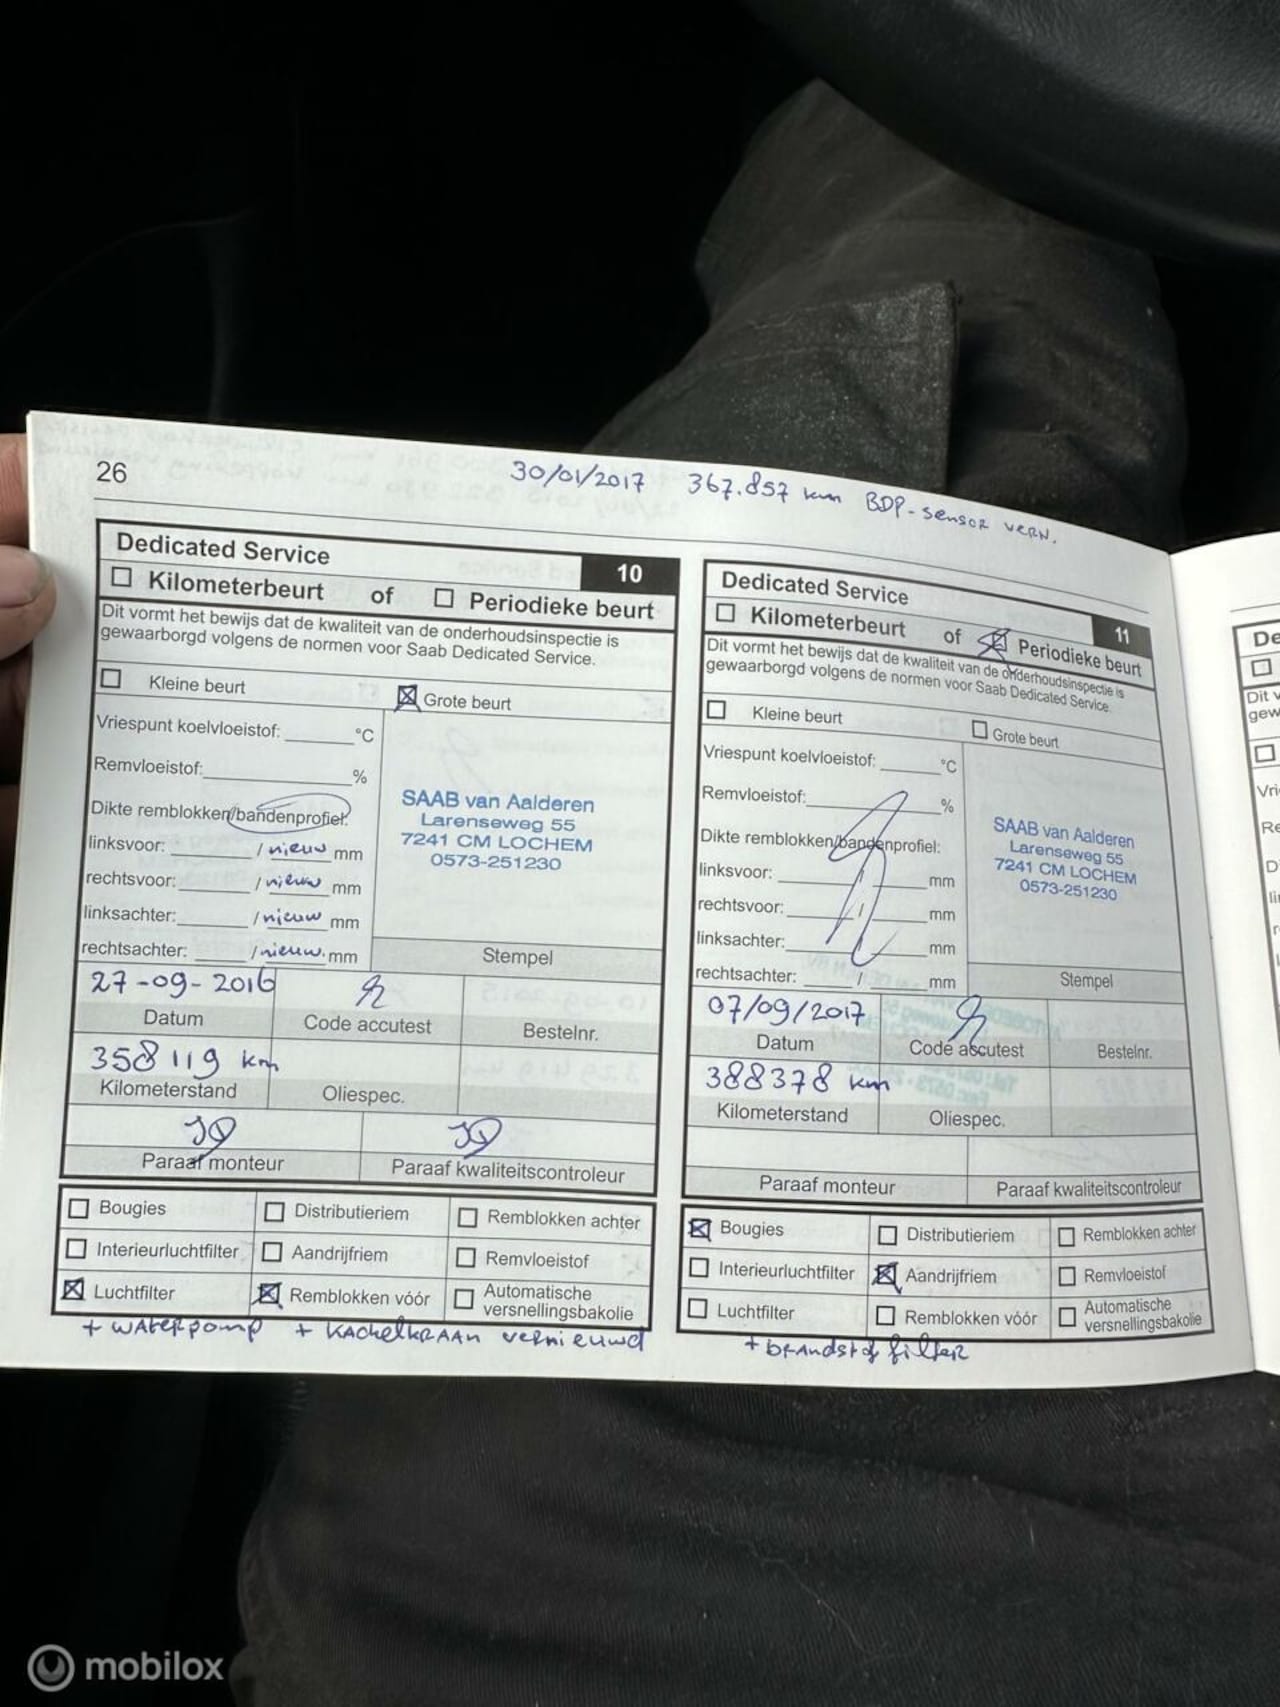 26
30/01/2017 367.857 km BDP-sensor vern.
Dedicated Service
10
Kilometerbeurt of Periodieke beurt
Dit vormt het bewijs dat de kwaliteit van de onderhoudsinspectie is
gewaarborgd volgens de normen voor Saab Dedicated Service.
Kleine beurt
Grote beurt
Vriespunt koelvloeistof: °C
Remvloeistof: %
Dikte remblokken/bandenprofiel:
linksvoor: / nieuw mm
rechtsvoor: / nieuw mm
linksachter: / nieuw mm
rechtsachter: / nieuw. mm
SAAB van Aalderen
Larenseweg 55
7241 CM LOCHEM
0573-251230
Stempel
27-09-2016
Datum
Code accutest
Bestelnr.
358119 km
Kilometerstand
Oliespec.
Paraaf monteur
Paraaf kwaliteitscontroleur
Bougies
Distributieriem
Remblokken achter
Interieurluchtfilter
Aandrijfriem
Remvloeistof
Luchtfilter
Remblokken vóór
Automatische
versnellingsbakolie
+ waterpomp + kachelkraan vernieuwd
Dedicated Service
11
Kilometerbeurt of Periodieke beurt
Dit vormt het bewijs dat de kwaliteit van de onderhoudsinspectie is
gewaarborgd volgens de normen voor Saab Dedicated Service.
Kleine beurt
Grote beurt
Vriespunt koelvloeistof: °C
Remvloeistof: %
Dikte remblokken/bandenprofiel:
linksvoor: / mm
rechtsvoor: / mm
linksachter: / mm
rechtsachter: / mm
SAAB van Aalderen
Larenseweg 55
7241 CM LOCHEM
0573-251230
Stempel
07/09/2017
Datum
Code accutest
Bestelnr.
388378 km
Kilometerstand
Oliespec.
Paraaf monteur
Paraaf kwaliteitscontroleur
Bougies
Distributieriem
Remblokken achter
Interieurluchtfilter
Aandrijfriem
Remvloeistof
Luchtfilter
Remblokken vóór
Automatische
versnellingsbakolie
+ brandstof filter
De
Dit v
gew
Vri
Re
D
mobilox